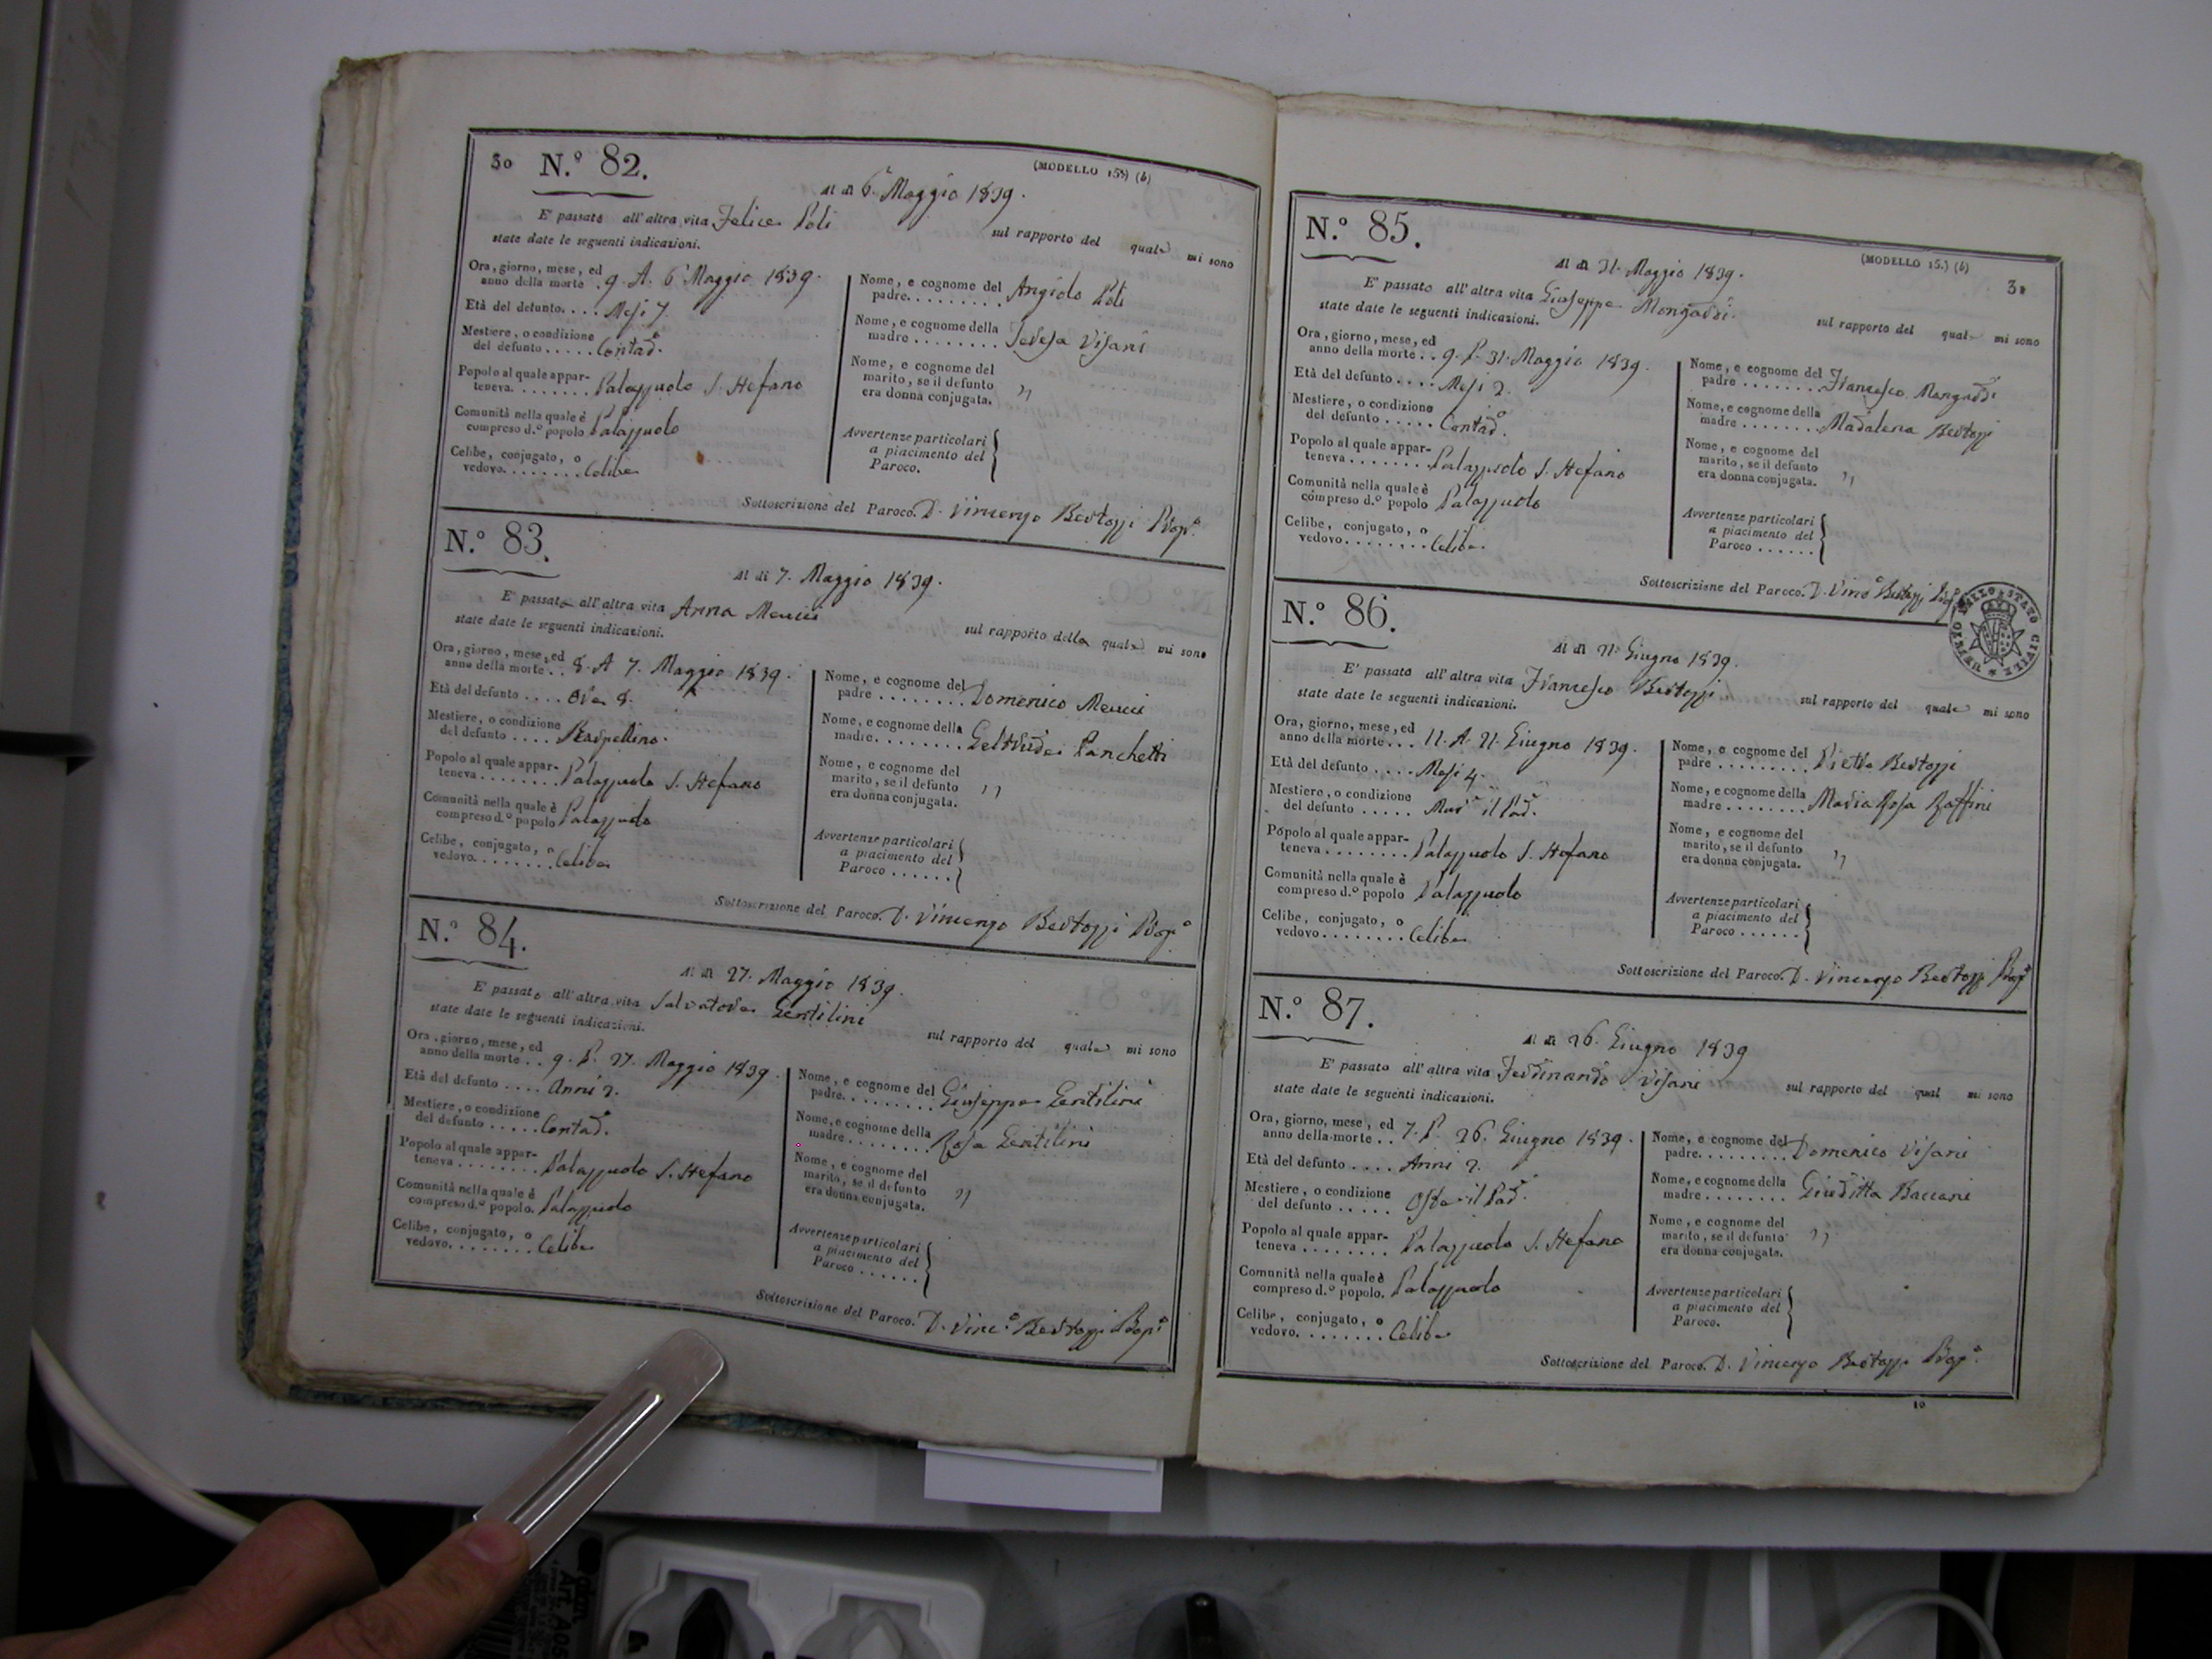 30 N.º 82. (MODELLO 15.) (b)
Al dì 6 Maggio 1839.
E' passato all'altra vita Felice Poli sul rapporto del quale mi sono
state date le seguenti indicazioni.
Ora, giorno, mese, ed
anno della morte . 9. A. 6 Maggio 1839.
Età del defunto.... Mesi 7
Mestiere, o condizione
del defunto ..... Contad.º
Popolo al quale appar-
teneva........ Palazzuolo S. Stefano
Comunità nella quale è
compreso d.º popolo Palazzuolo
Celibe, conjugato, o
vedovo........ Celibe
Nome, e cognome del
padre......... Angiolo Poli
Nome, e cognome della
madre ........ Teresa Visani
Nome, e cognome del
marito, se il defunto
era donna conjugata. "
Avvertenze particolari
a piacimento del
Paroco.
Sottoscrizione del Paroco. D. Vincenzo Bertozzi Prop.º
N.º 83.
Al dì 7. Maggio 1839.
E' passato all'altra vita Anna Meucci sul rapporto della quale mi sono
state date le seguenti indicazioni.
Ora, giorno, mese, ed
anno della morte .. 8. A 7. Maggio 1839.
Età del defunto .... Ore 8.
Mestiere, o condizione
del defunto ....
Popolo al quale appar-
teneva........ Palazzuolo S. Stefano
Comunità nella quale è
compreso d.º popolo Palazzuolo
Celibe, conjugato, o
vedovo........ Celibe
Nome, e cognome del
padre ........ Domenico Meucci
Nome, e cognome della
madre........ Geltrude Panchetti
Nome, e cognome del
marito, se il defunto
era donna conjugata. "
Avvertenze particolari
a piacimento del
Paroco ......
Sottoscrizione del Paroco. D. Vincenzo Bertozzi Prop.º
N.º 84.
Al dì 27. Maggio 1839.
E' passato all'altra vita Salvatore Gentilini sul rapporto del quale mi sono
state date le seguenti indicazioni.
Ora, giorno, mese, ed
anno della morte .. 9. P. 27. Maggio 1839.
Età del defunto .... Anni 2.
Mestiere, o condizione
del defunto ..... Contad.º
Popolo al quale appar-
teneva ........ Palazzuolo S. Stefano
Comunità nella quale è
compreso d.º popolo. Palazzuolo
Celibe, conjugato, o
vedovo........ Celibe
Nome, e cognome del
padre......... Giuseppe Gentilini
Nome, e cognome della
madre ........ Rosa Gentilini
Nome, e cognome del
marito, se il defunto
era donna conjugata. "
Avvertenze particolari
a piacimento del
Paroco ......
Sottoscrizione del Paroco. D. Vinc.º Bertozzi Prop.º
N.º 85. (MODELLO 15.) (b) 31
Al dì 31. Maggio 1839.
E' passato all'altra vita Giuseppe Mongardi. sul rapporto del quale mi sono
state date le seguenti indicazioni.
Ora, giorno, mese, ed
anno della morte .. 9. P. 31. Maggio 1839.
Età del defunto .... Mesi 2.
Mestiere, o condizione
del defunto ..... Contad.º
Popolo al quale appar-
teneva........ Palazzuolo S. Stefano
Comunità nella quale è
compreso d.º popolo Palazzuolo
Celibe, conjugato, o
vedovo........ Celibe.
Nome, e cognome del
padre ........ Francesco Mongardi
Nome, e cognome della
madre ........ Madalena Bertozzi
Nome, e cognome del
marito, se il defunto
era donna conjugata. "
Avvertenze particolari
a piacimento del
Paroco ......
Sottoscrizione del Paroco. D. Vinc.º Bertozzi Prop.º
DELLO STATO CIVILE
N.º 86.
Al dì 21. Giugno 1839.
E' passato all'altra vita Francesco Bertozzi sul rapporto del quale mi sono
state date le seguenti indicazioni.
Ora, giorno, mese, ed
anno della morte ... 11. A. 21. Giugno 1839.
Età del defunto .... Mesi 4.
Mestiere, o condizione
del defunto ..... Mur.e il Pad.e
Popolo al quale appar-
teneva ........ Palazzuolo S. Stefano
Comunità nella quale è
compreso d.º popolo Palazzuolo
Celibe, conjugato, o
vedovo........ Celibe
Nome, e cognome del
padre ......... Pietro Bertozzi
Nome, e cognome della
madre ........ Maria Rosa Raffini
Nome, e cognome del
marito, se il defunto
era donna conjugata. "
Avvertenze particolari
a piacimento del
Paroco ......
Sottoscrizione del Paroco. D. Vincenzo Bertozzi Prop.º
N.º 87.
Al dì 26. Giugno 1839
E' passato all'altra vita Ferdinando Visani sul rapporto del qual mi sono
state date le seguenti indicazioni.
Ora, giorno, mese, ed
anno della morte .. 7. P. 26. Giugno 1839.
Età del defunto .... Anni 2.
Mestiere, o condizione
del defunto ..... Oste il Pad.e
Popolo al quale appar-
teneva ........ Palazzuolo S. Stefano
Comunità nella quale è
compreso d.º popolo. Palazzuolo
Celibe, conjugato, o
vedovo........ Celibe
Nome, e cognome del
padre......... Domenico Visani
Nome, e cognome della
madre ........ Giuditta Baccani
Nome, e cognome del
marito, se il defunto
era donna conjugata. "
Avvertenze particolari
a piacimento del
Paroco.
Sottoscrizione del Paroco. D. Vincenzo Bertozzi Prop.º
10